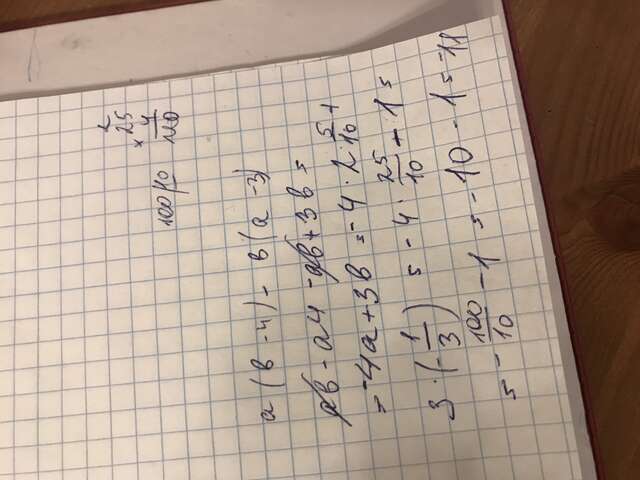 2
25
× 4
100/10 100
a (b - 4) - b (a - 3)
ab - a4 - ab + 3b =
= -4a + 3b = -4 · 2 5/10 +
3 · (- 1/3) = -4 · 25/10 - 1 =
= - 100/10 - 1 = -10 - 1 = -11